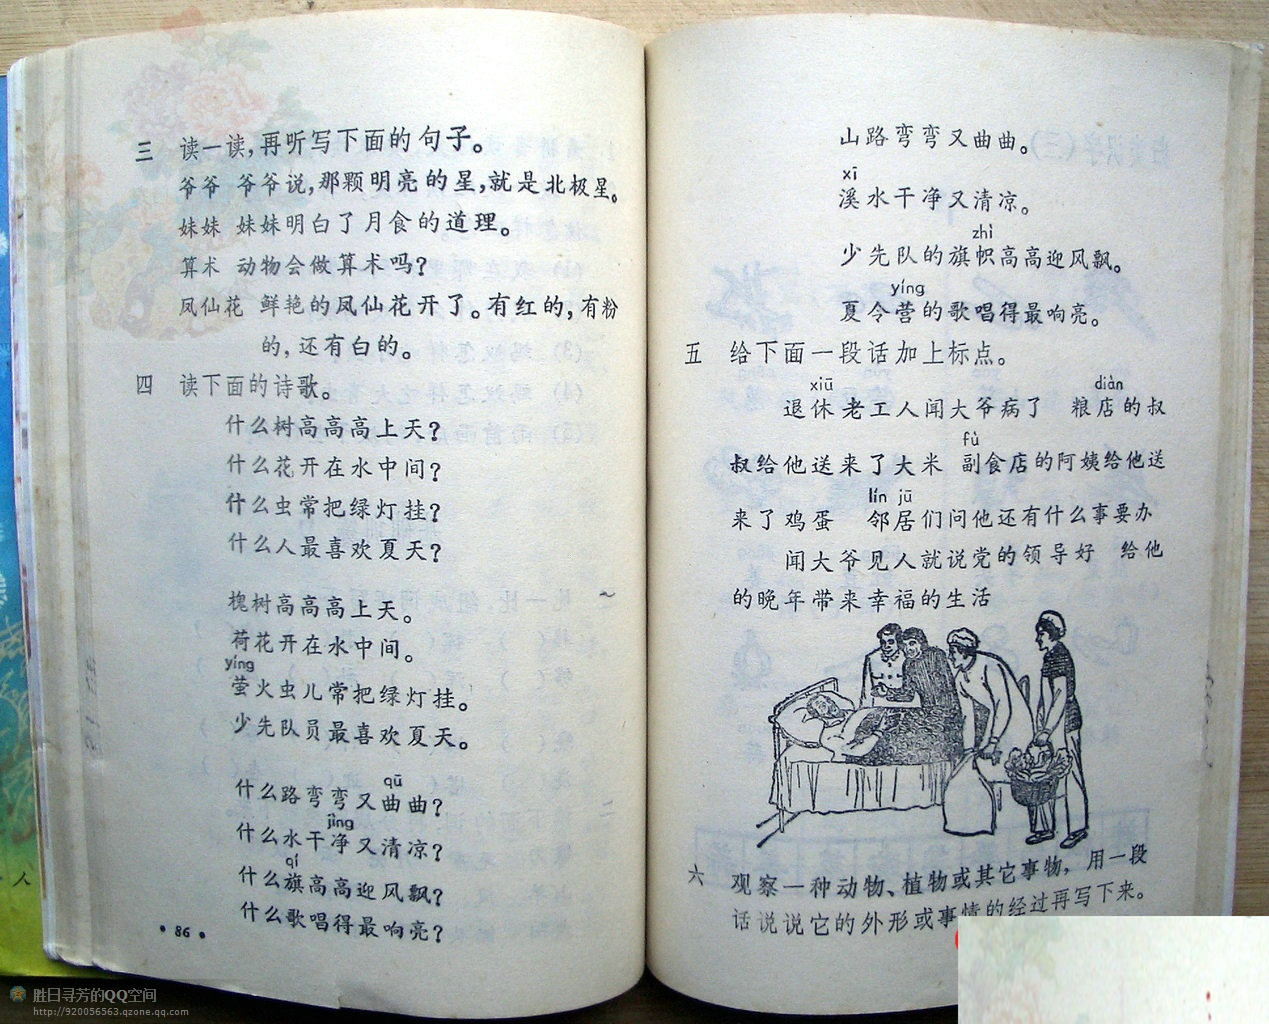 三 读一读,再听写下面的句子。
爷爷 爷爷说,那颗明亮的星,就是北极星。
妹妹 妹妹明白了月食的道理。
算术 动物会做算术吗?
凤仙花 鲜艳的凤仙花开了。有红的,有粉
的,还有白的。
四 读下面的诗歌。
什么树高高高上天?
什么花开在水中间?
什么虫常把绿灯挂?
什么人最喜欢夏天?
槐树高高高上天。
荷花开在水中间。
yíng
萤火虫儿常把绿灯挂。
少先队员最喜欢夏天。
qū
什么路弯弯又曲曲?
jìng
什么水干净又清凉?
qí
什么旗高高迎风飘?
什么歌唱得最响亮?
• 86 •
山路弯弯又曲曲。
xī
溪水干净又清凉。
zhì
少先队的旗帜高高迎风飘。
yíng
夏令营的歌唱得最响亮。
五 给下面一段话加上标点。
xiū diàn
退休老工人闻大爷病了 粮店的叔
fù
叔给他送来了大米 副食店的阿姨给他送
lín jū
来了鸡蛋 邻居们问他还有什么事要办
闻大爷见人就说党的领导好 给他
的晚年带来幸福的生活
六 观察一种动物、植物或其它事物,用一段
话说说它的外形或事情的经过再写下来。
人
胜日寻芳的QQ空间
http://920056563.qzone.qq.com